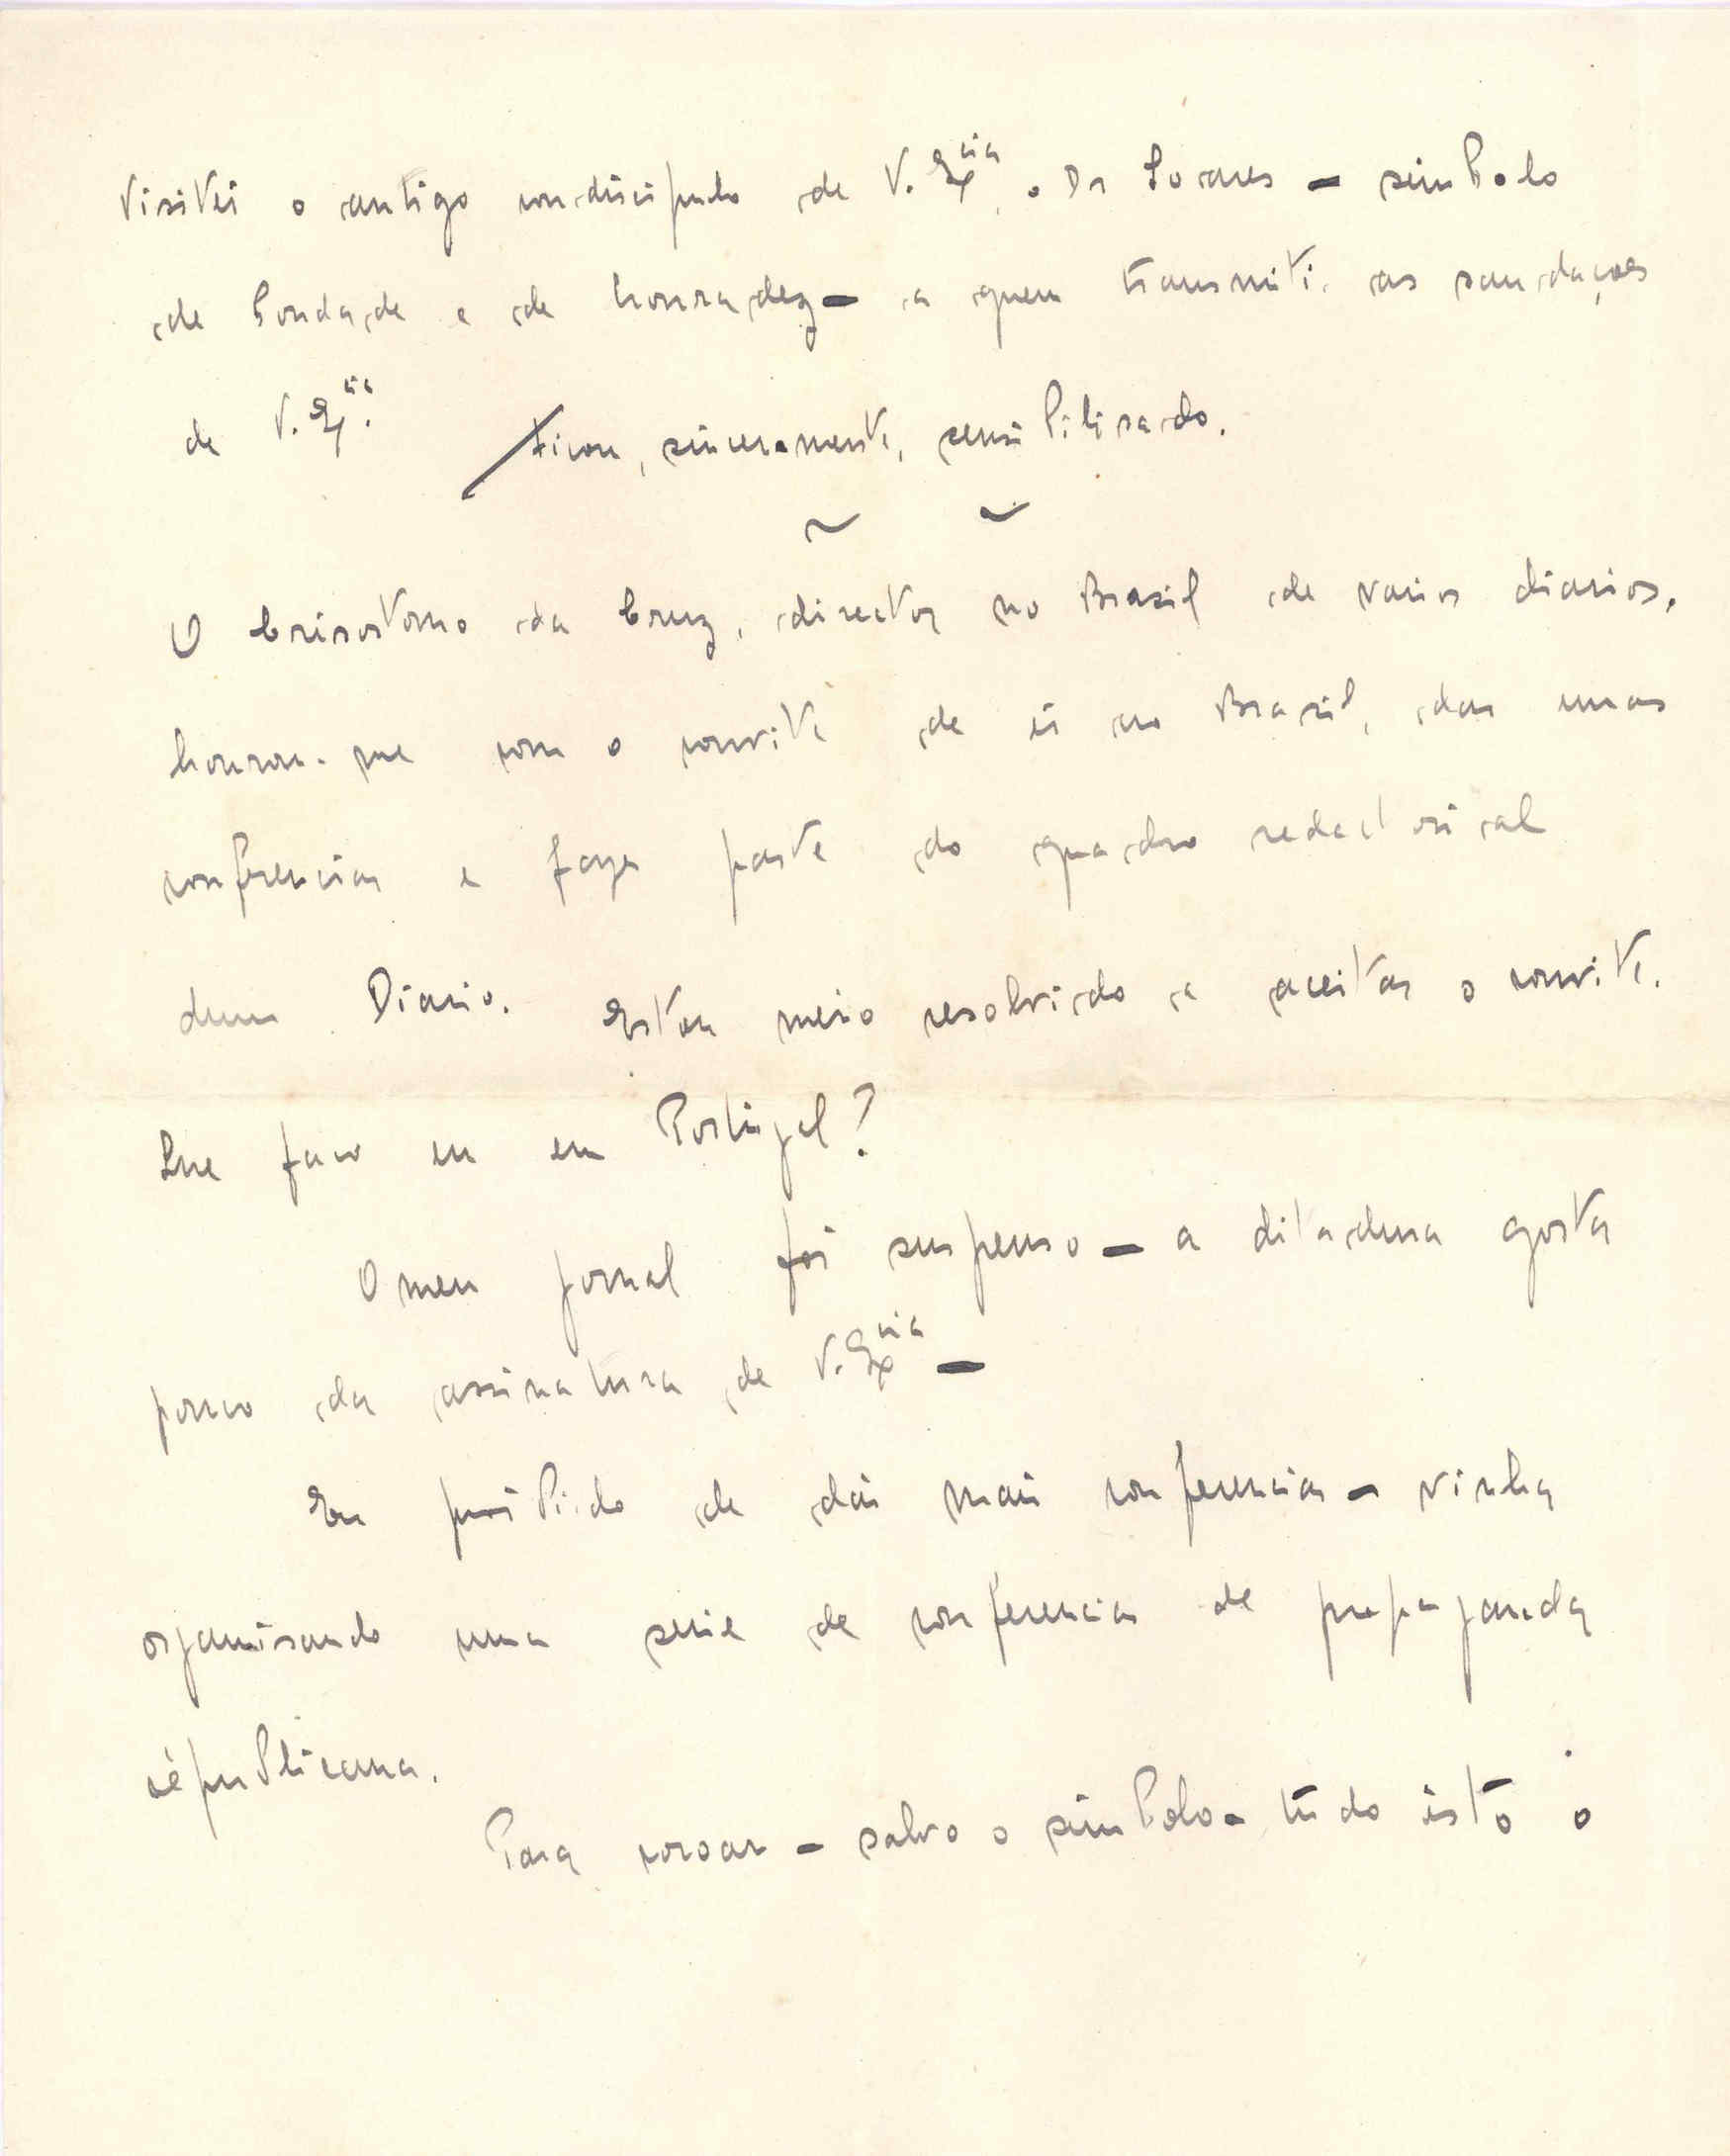 Visitei o antigo condiscipulo de V. Excia, o Dr Soares – simbolo
de bondade e de honradez – a quem transmiti as saudações
de V. Excia. Ficou, sinceramente, sensibilisado.
O Crisostomo da Cruz, director no Brasil de varios diarios,
honrou-me com o convite de ir ao Brasil, dar umas
conferencias e fazer parte do quadro redactorial
dum Diario. Estou meio resolvido a aceitar o convite.
Que faço eu em Portugal?
O meu jornal foi suspenso – a ditadura gosta
pouco da assinatura de V. Excia –
Eu proibido de dar mais conferencias – vinha
organisando uma serie de conferencias de propaganda
républicana.
Para coroar – salvo o simbolo – tudo isto o